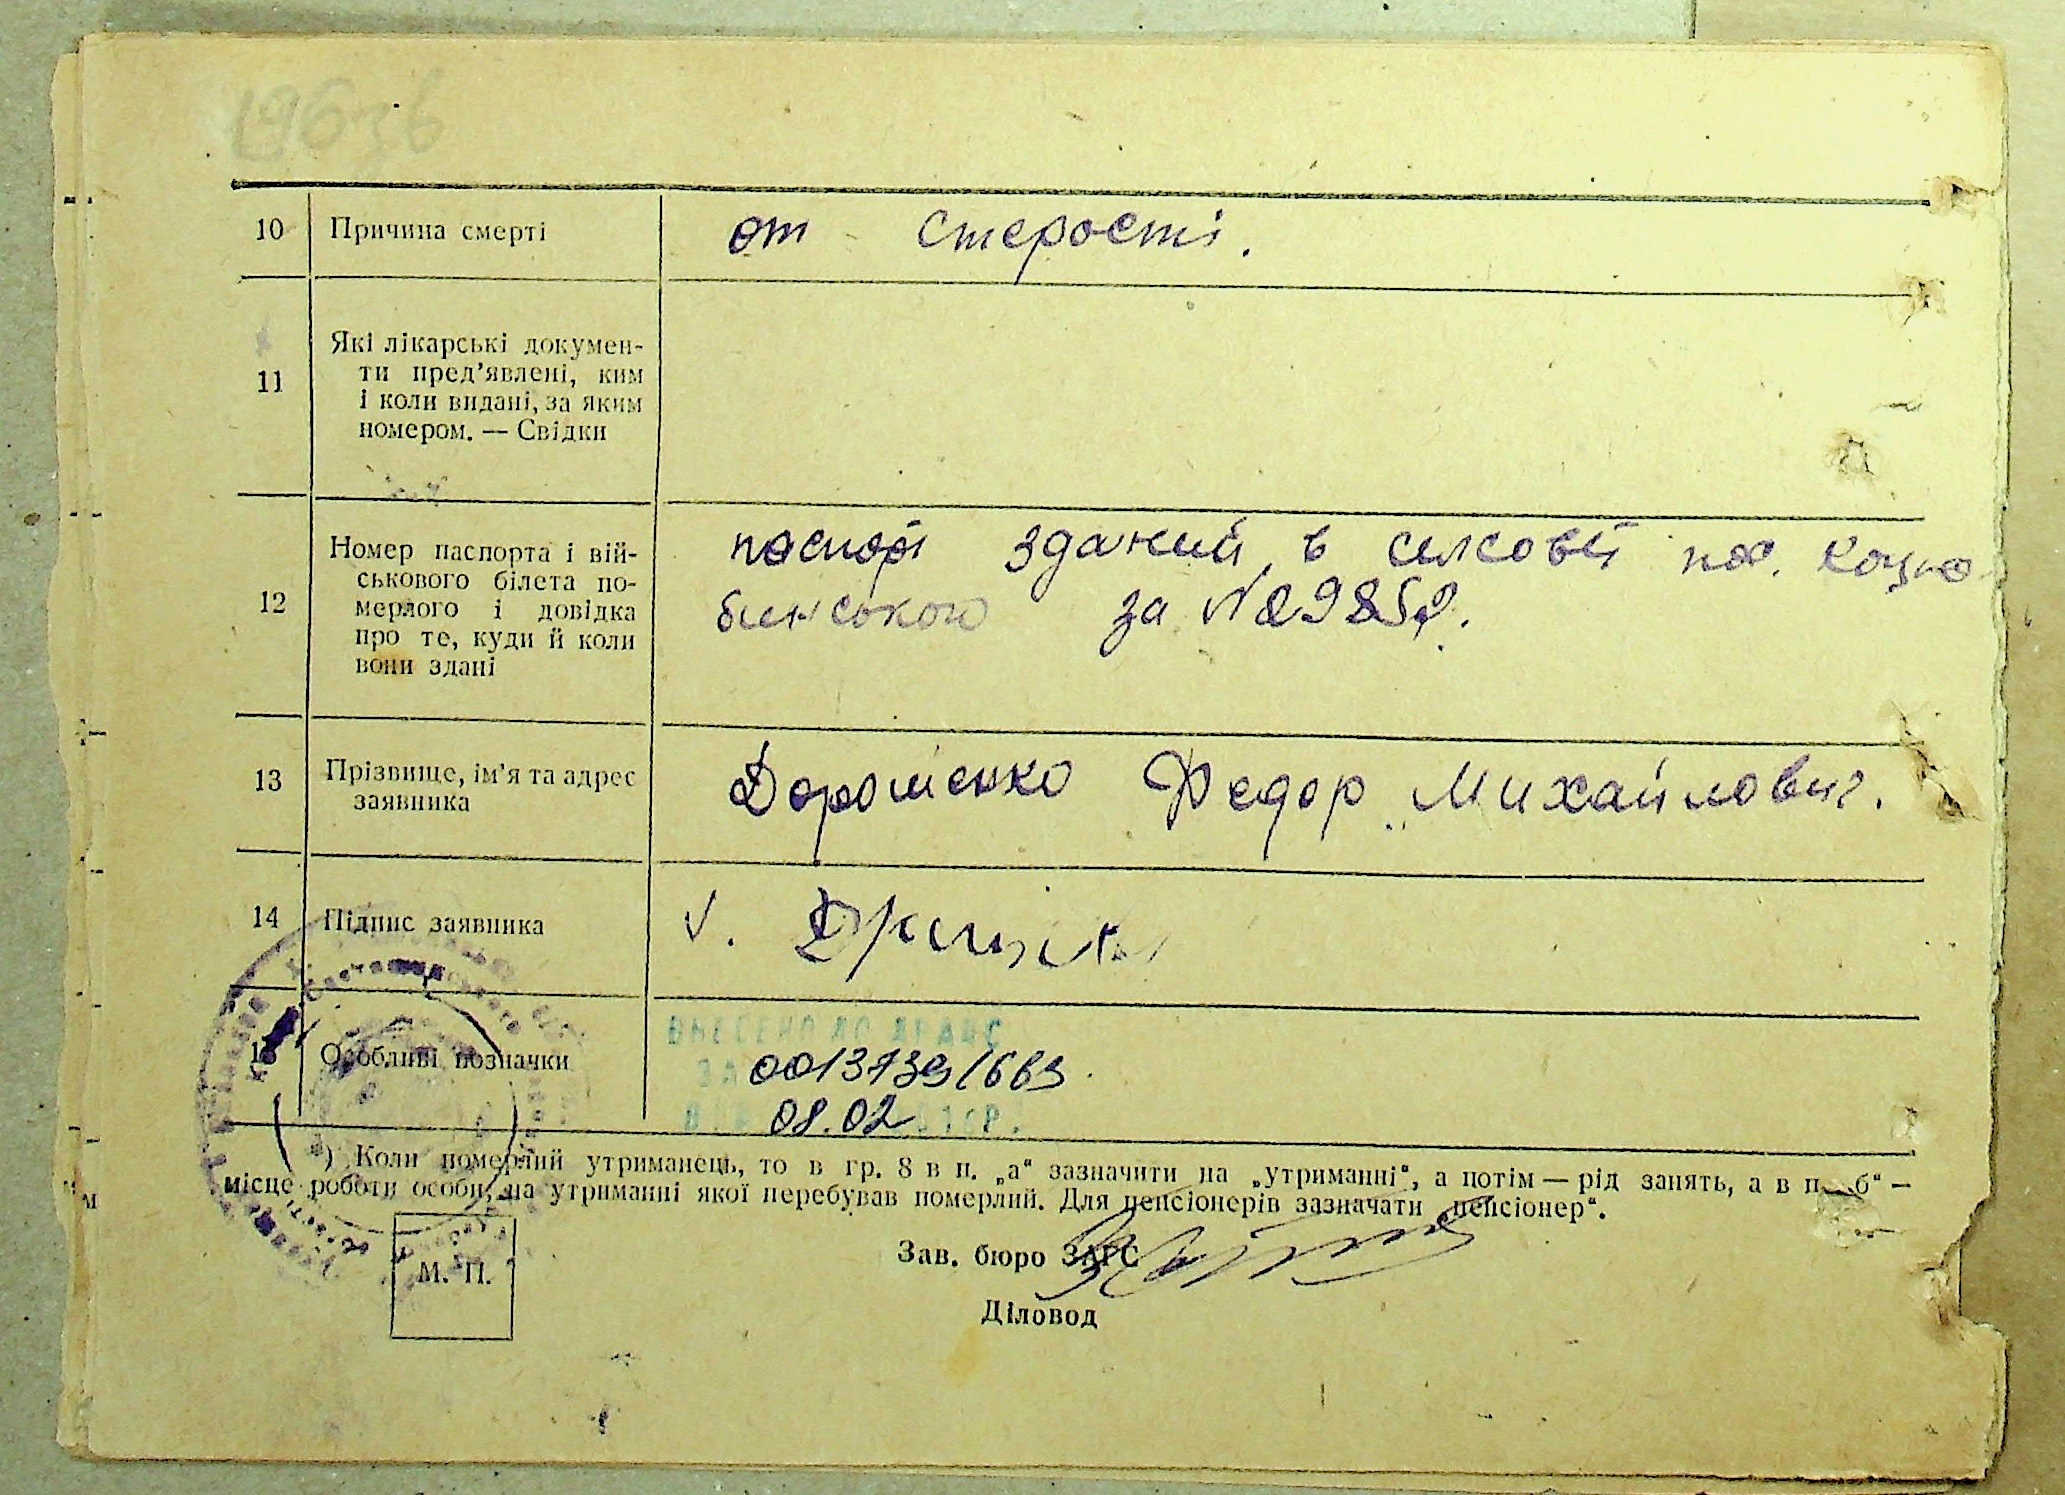 10 Причина смерті от стерості.
11 Які лікарські докумен-
ти пред’явлені, ким
і коли видані, за яким
номером. — Свідки
12 Номер паспорта і вій-
ськового білета по-
мерлого і довідка
про те, куди й коли
вони здані
паспорт зданий в силсовєт
за №
13 Прізвище, ім’я та адрес
заявника
Дорошенко Федор Михайлович.
14 Підпис заявника V.
15 Особливі позначки
ВНЕСЕНО ДО ДРАЦС
00137391663
08.02
*) Коли померлий утриманець, то в гр. 8 в п. „а“ зазначити на „утриманні“, а потім — рід занять, а в п. „б“ —
місце роботи особи, на утриманні якої перебував померлий. Для пенсіонерів зазначати „пенсіонер“.
М. П.
Зав. бюро ЗАГС
Діловод